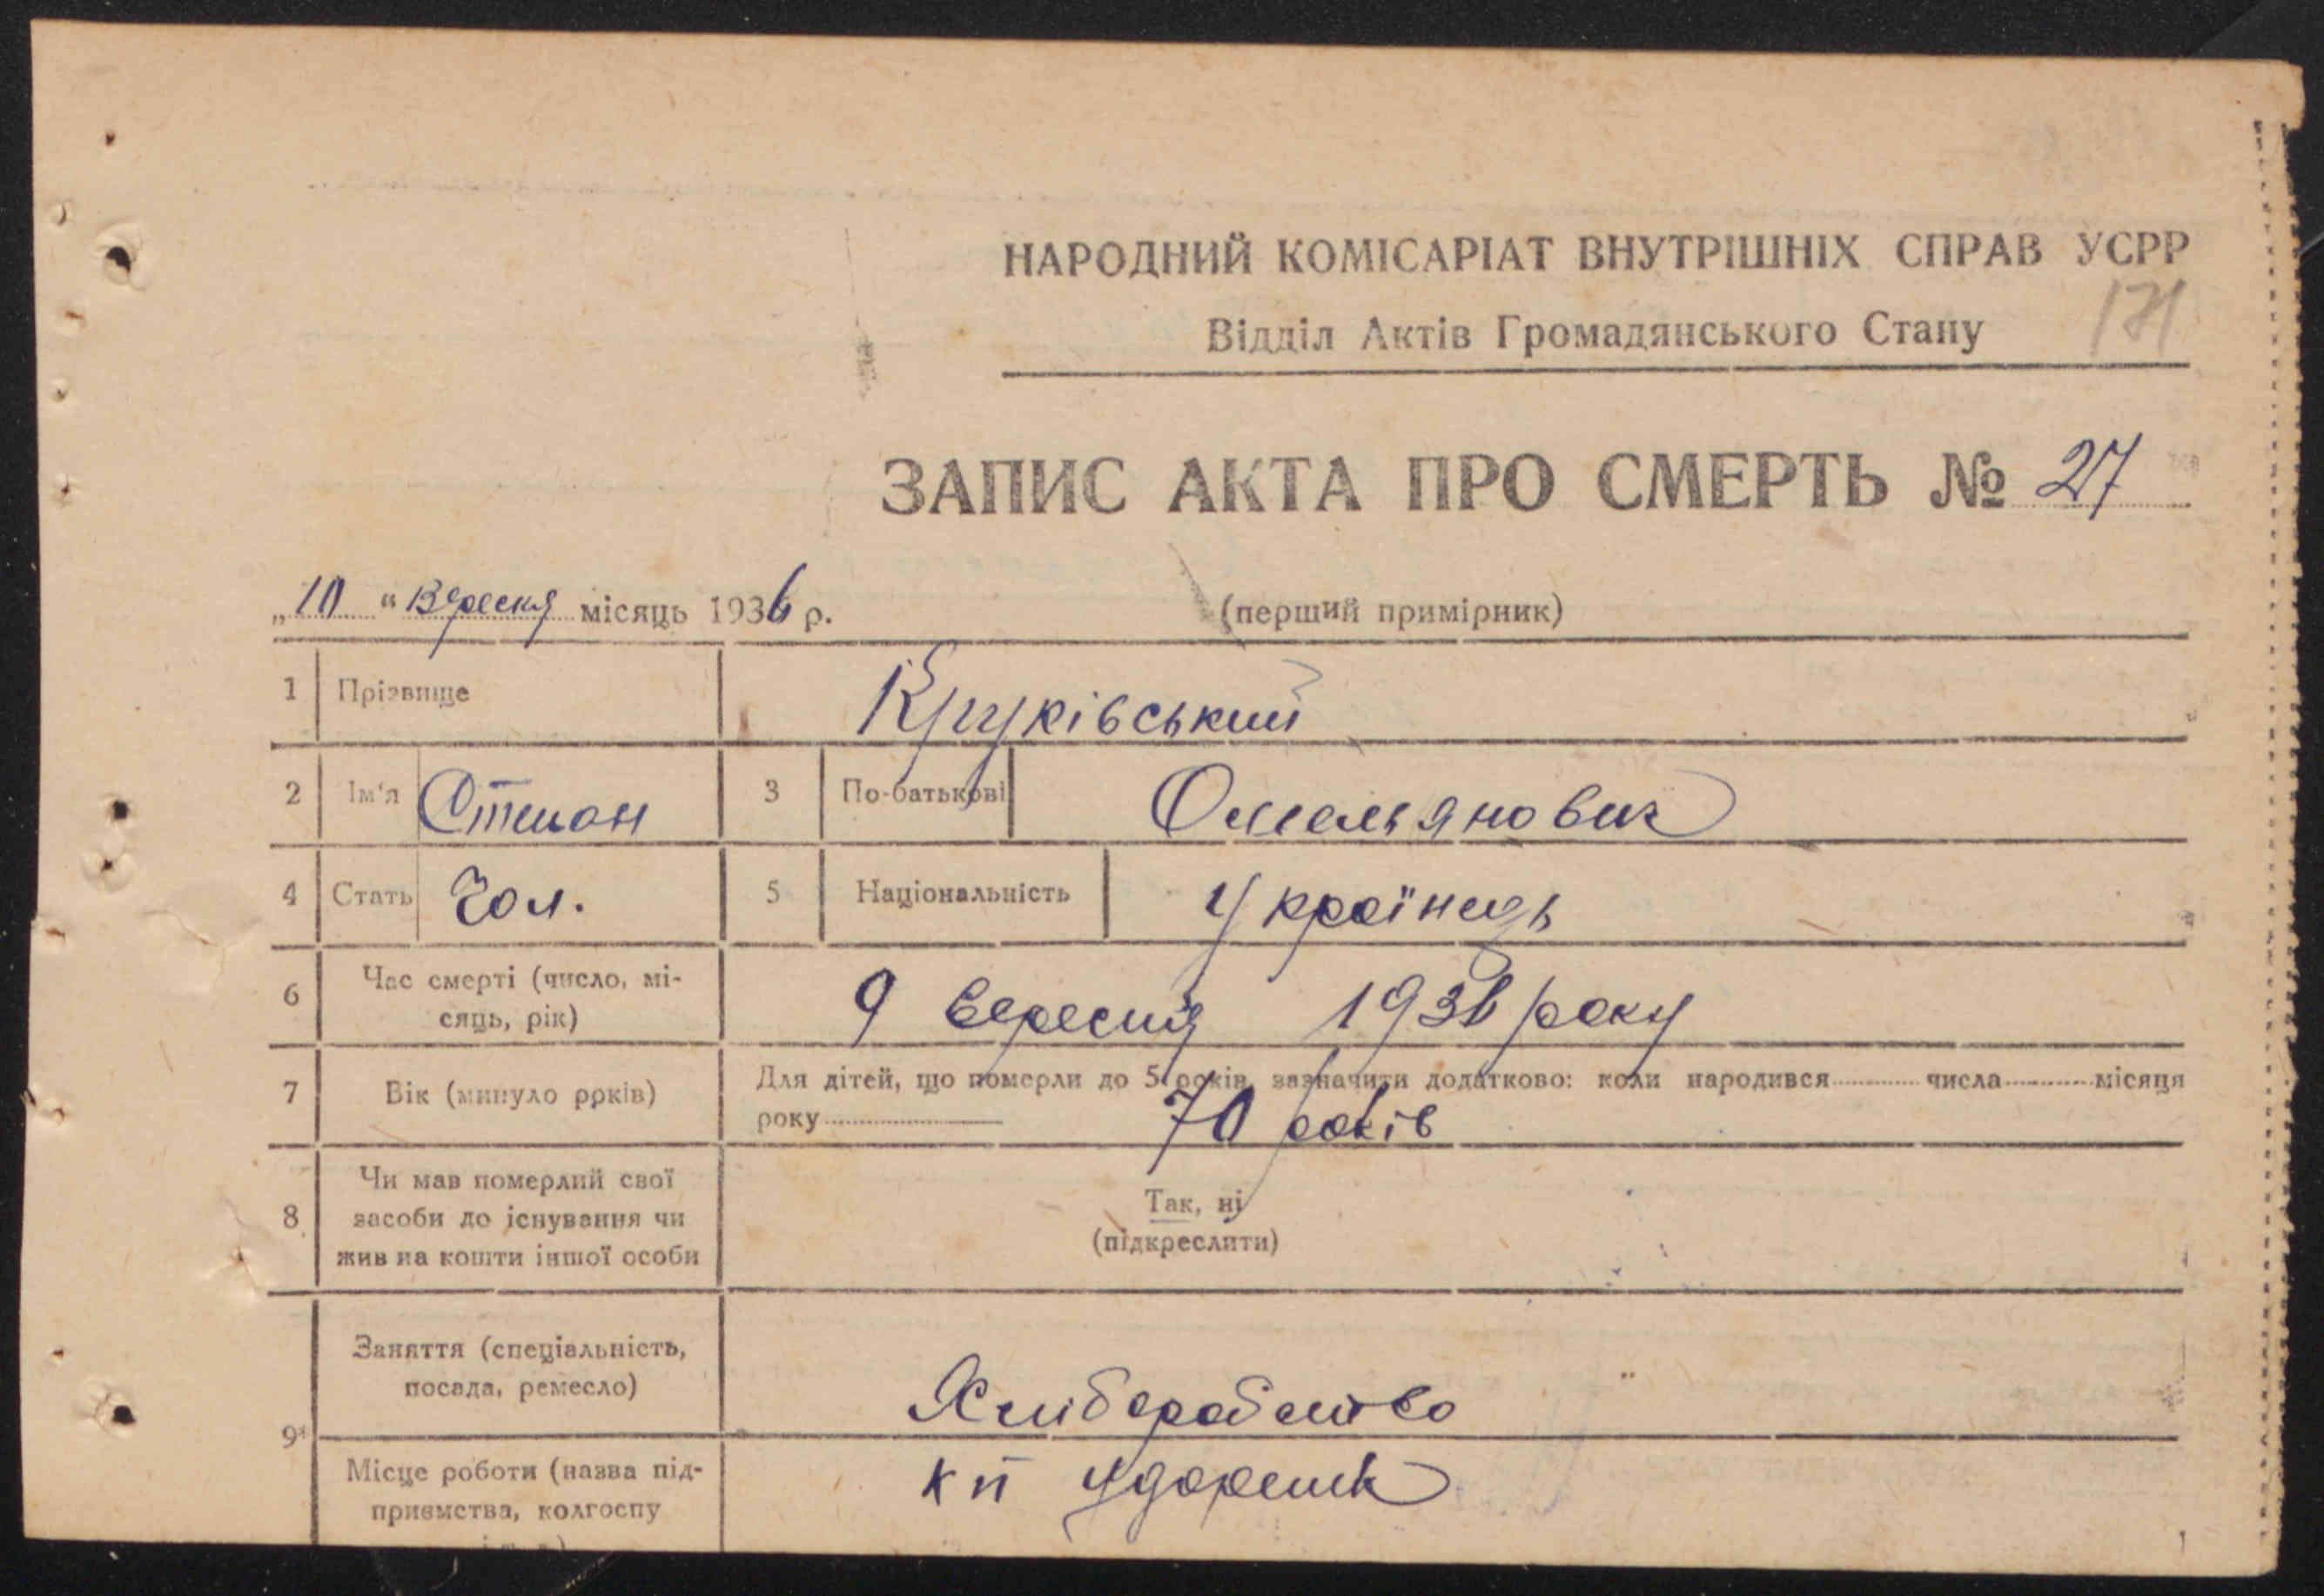 НАРОДНИЙ КОМІСАРІАТ ВНУТРІШНІХ СПРАВ УСРР
Відділ Актів Громадянського Стану
171
ЗАПИС АКТА ПРО СМЕРТЬ № 27
„10“ Вересня місяць 1936 р. (перший примірник)
1 Прізвище Круківський
2 Ім'я Степан 3 По-батькові Омельянович
4 Стать Чол. 5 Національність Українець
6 Час смерті (число, мі-
сяць, рік) 9 вересня 1936 року
7 Вік (минуло років) Для дітей, що померли до 5 років, зазначити додатково: коли народився числа місяця
року 70 років
8 Чи мав померлий свої
засоби до існування чи
жив на кошти іншої особи
Так, ні
(підкреслити)
9 Заняття (спеціальність,
посада, ремесло) Хліборобство
Місце роботи (назва під-
приємства, колгоспу
кп Ударник